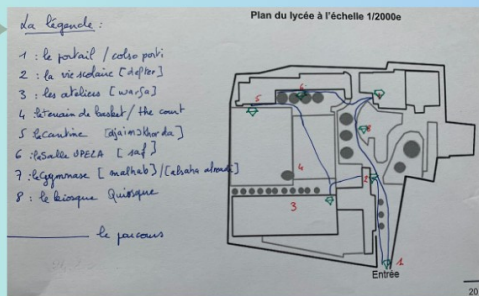 La légende :
1 : le portail / colso porti
2 : la vie scolaire [defter]
3 : les ateliers [warça]
4 le terrain de basket / the court
5 la cantine
6 : la Salle UPE2A [saf]
7 : le Gymnase [malhab] /
8 : le kiosque Quiosque
le parcours
Plan du lycée à l'échelle 1/2000e
5
6
7
8
4
3
2
1
Entrée
20